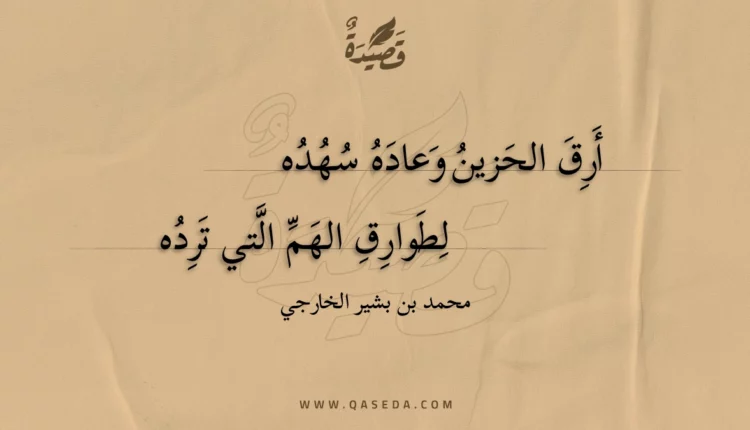 قَصِيْدَةٌ
أَرِقَ الحَزينُ وَعادَهُ سُهُدُه
لِطَوارِقِ الهَمِّ الَّتي تَرِدُه
محمد بن بشير الخارجي
WWW.QASEDA.COM